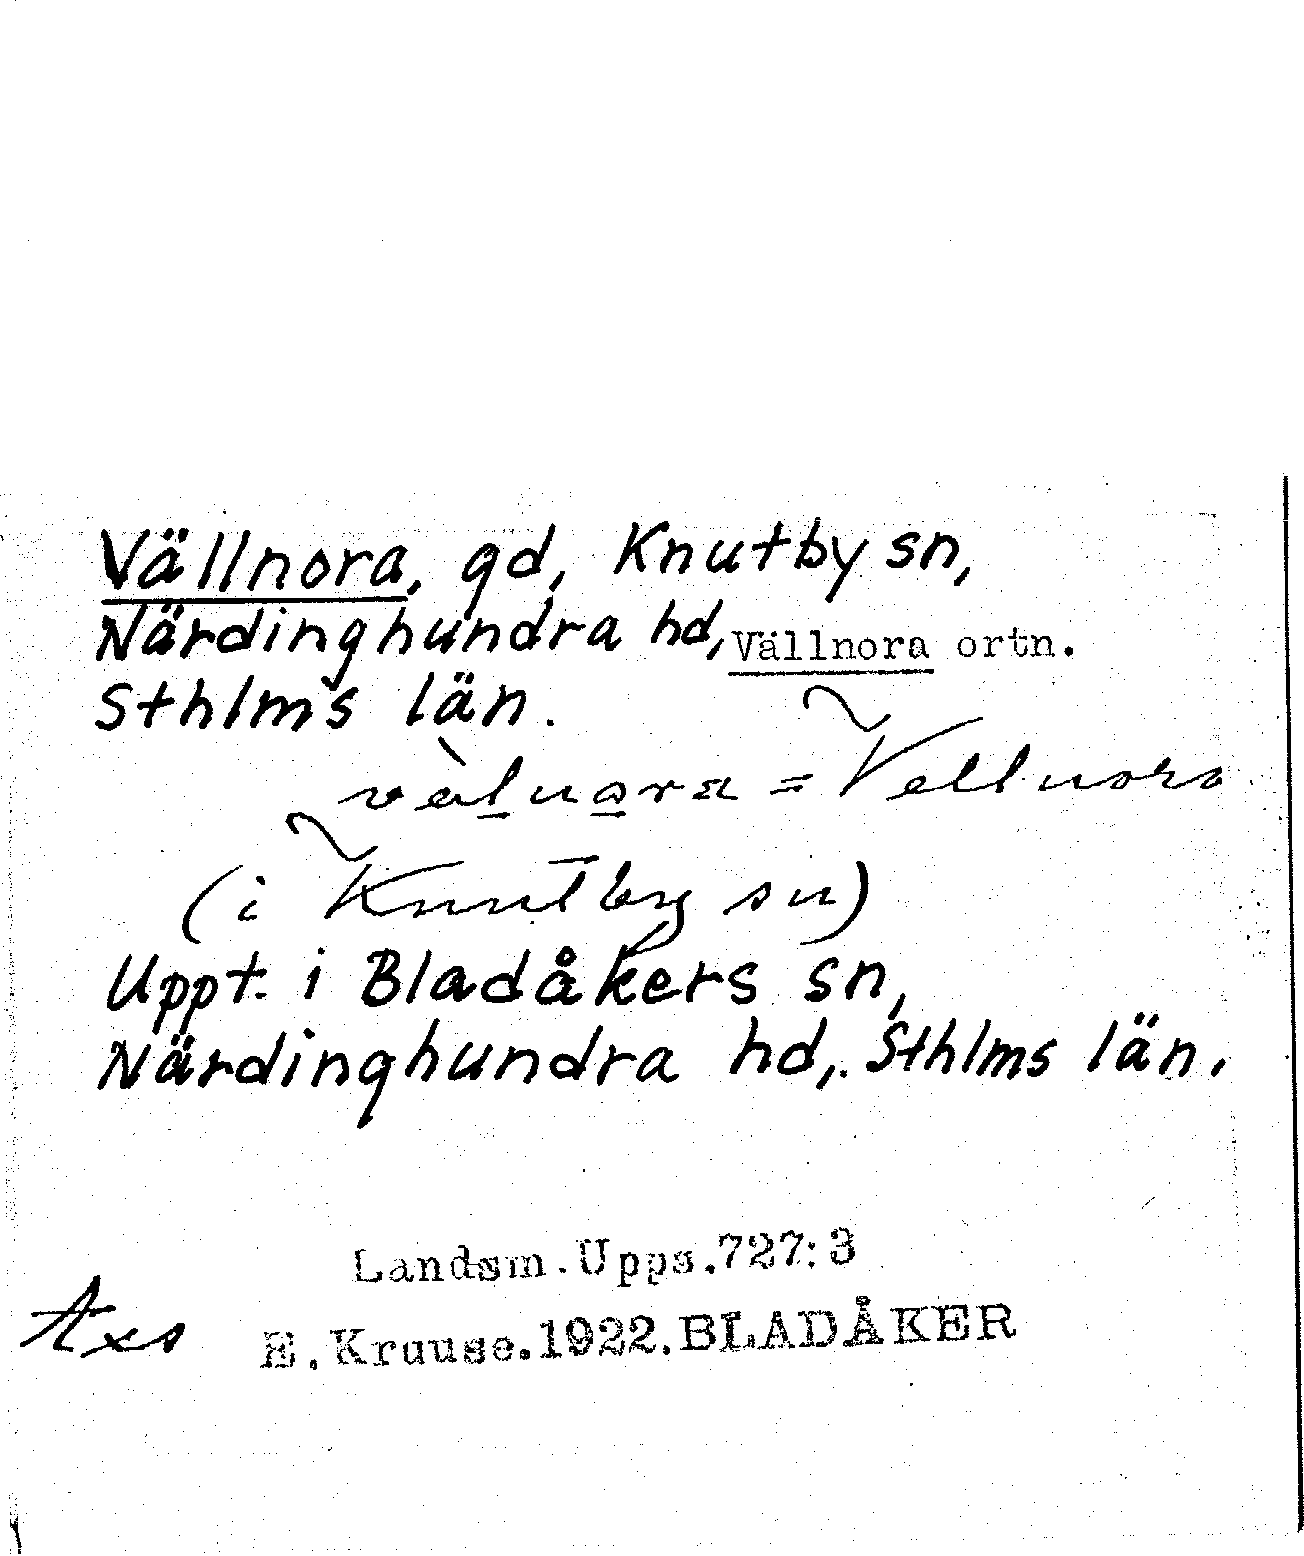 Vällnora, gd, Knutby sn,
Närdinghundra hd, Vällnora ortn.
Sthlms län.
= Vellnora
(i Knutby sn)
Uppt. i Bladåkers sn,
Närdinghundra hd, Sthlms län.
Landsm. Upps. 727:3
Axs E. Kruuse. 1922. BLADÅKER